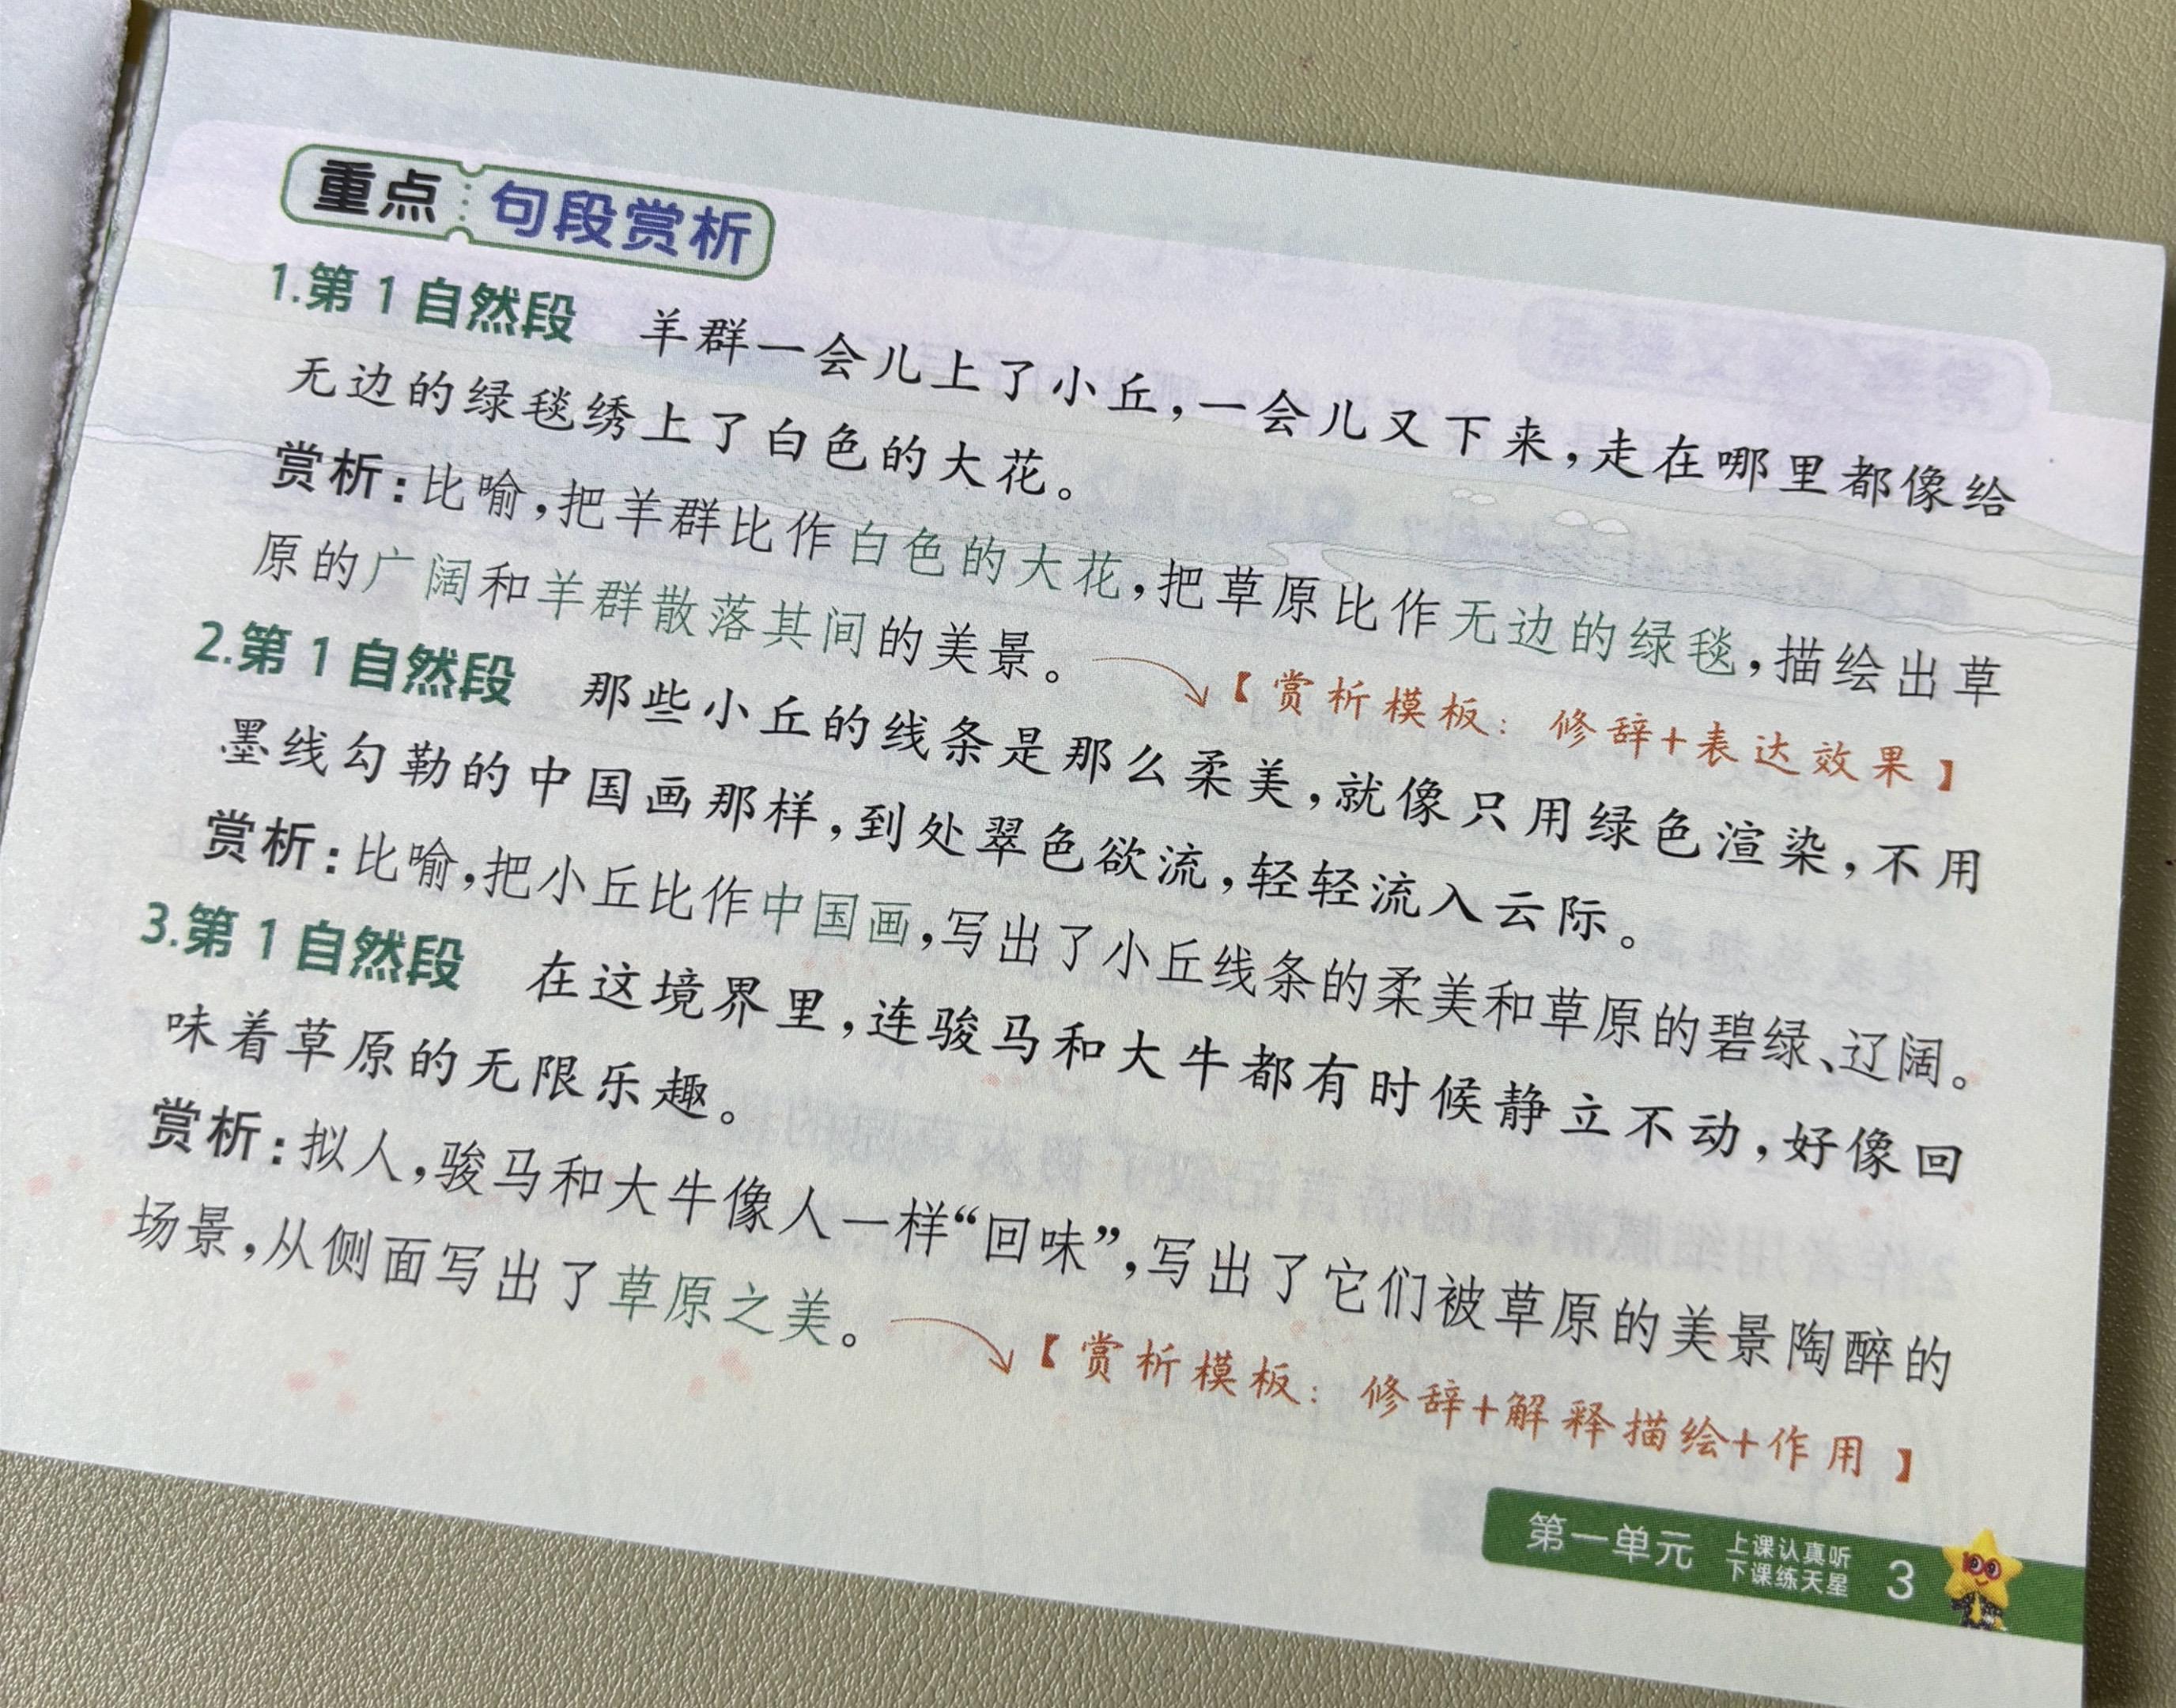 重点 句段赏析
1.第1自然段 羊群一会儿上了小丘,一会儿又下来,走在哪里都像给
无边的绿毯绣上了白色的大花。
赏析:比喻,把羊群比作白色的大花,把草原比作无边的绿毯,描绘出草
原的广阔和羊群散落其间的美景。
【赏析模板:修辞+表达效果】
2.第1自然段 那些小丘的线条是那么柔美,就像只用绿色渲染,不用
墨线勾勒的中国画那样,到处翠色欲流,轻轻流入云际。
赏析:比喻,把小丘比作中国画,写出了小丘线条的柔美和草原的碧绿、辽阔。
3.第1自然段 在这境界里,连骏马和大牛都有时候静立不动,好像回
味着草原的无限乐趣。
赏析:拟人,骏马和大牛像人一样“回味”,写出了它们被草原的美景陶醉的
场景,从侧面写出了草原之美。
【赏析模板:修辞+解释描绘+作用】
第一单元 上课认真听
下课练天星 3